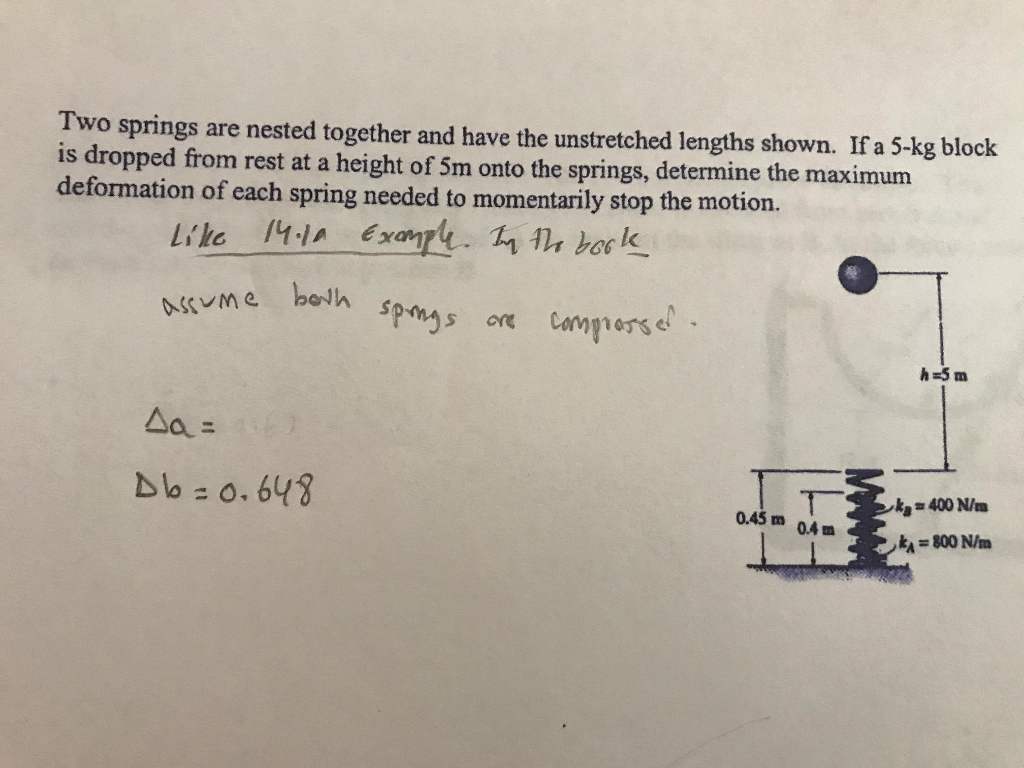 Two springs are nested together and have the unstretched lengths shown. If a 5-kg block
is dropped from rest at a height of 5m onto the springs, determine the maximum
deformation of each spring needed to momentarily stop the motion.
Like 14.1a Example. In the book
assume both springs are compressed.
h=5 m
Δa =
Δb = 0.648
k_B = 400 N/m
0.45 m
0.4 m
k_A = 800 N/m